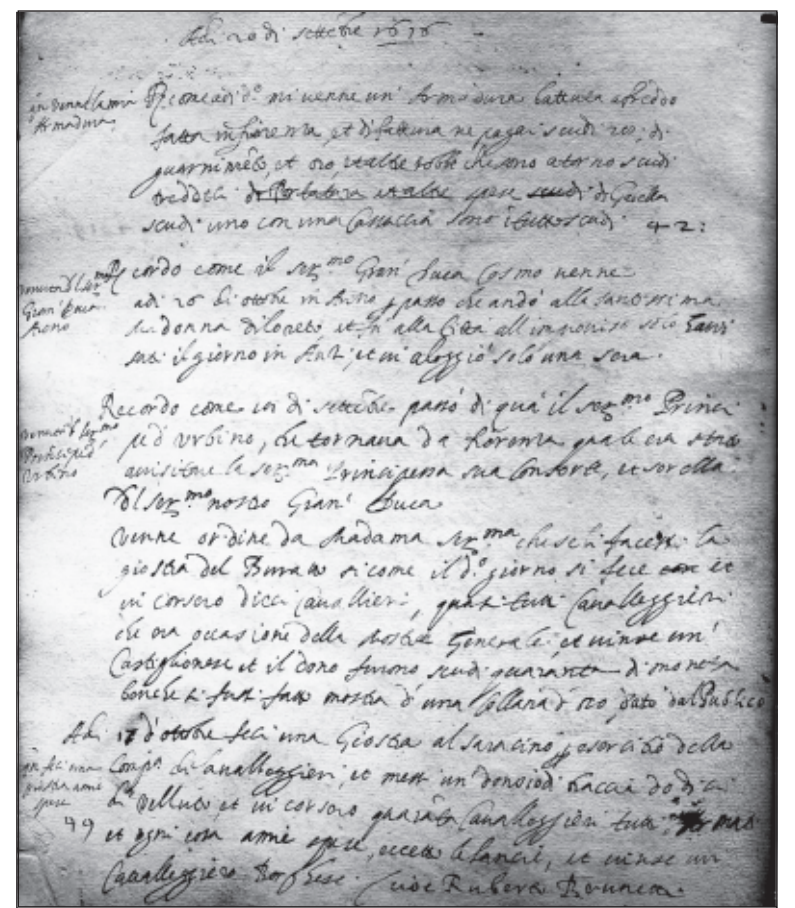 Adi 20 di settẽbre 1616
qñ venne la mia
Armadura
Ricome adi dº mi uenne un' Armadura battuta a freddo
fatta in fiorenza, et di fattura ne pagai scudi 20, di
guarnimẽto, et oro, et altre robbe che sono atorno scudi
treddeci di Portatura et altre spese scudi di Gabella
scudi uno con una Cassaccia sono ĩ tutto scudi 42:
venuta dl Serᵐᵒ
Gran' Duca
Arezo
Ricordo come il Serᵐᵒ Gran' Duca Cosmo uenne
adi 26 di ottobre in Arezo, passò che andò alla santissima
Madonna di Loreto et in alla Città all improuiso solo
il giorno in et ui aloggiò solo una sera.
venuta dl Serᵐᵒ
Principe d
Vrbino
Recordo come di settẽbre passò di quà il Serᵐᵒ Princi
pe d' Vrbino, che tornaua da fiorenza quale era stato
auisitare la Serᵐᵃ Principessa sua Consorte, et sorella
dl Serᵐᵒ nostro Gran' Duca
venne ordine da Madama Serᵐᵃ che seli facessi la
giostra del Buratto sicome il dº giorno si fece et
ui corsero dieci Cauallieri, quasi tutti Caualleggieri
che era occasione della mostra Generale, et uinse un'
Castiglionese et il dono furono scudi quaranta di moneta
benche si fussi fatto mostra d' una Collana d' oro, dato dal Publico
Adi 17 d' ottobre feci una Giostra al saracino, p esercitio della
qñ feci una
giostra a mie
spese
Compᵃ di Caualleggieri, et messi un' dono di braccia dodici
di Velluto, et ui corsero quarãta Caualleggieri tutti
49
et ogni cosa amie spese, eccetto le lancie, et uinse un
Caualleggiero Borghese. Cioè Rubera